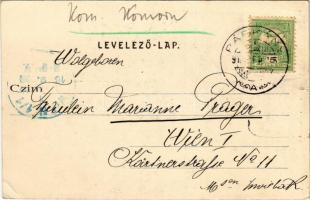 Kom. Komorn
LEVELEZŐ-LAP.
Wolgeboren
Czim
Fräulein Marianne Prager
Wien I
Kärtnerstrasse No 11